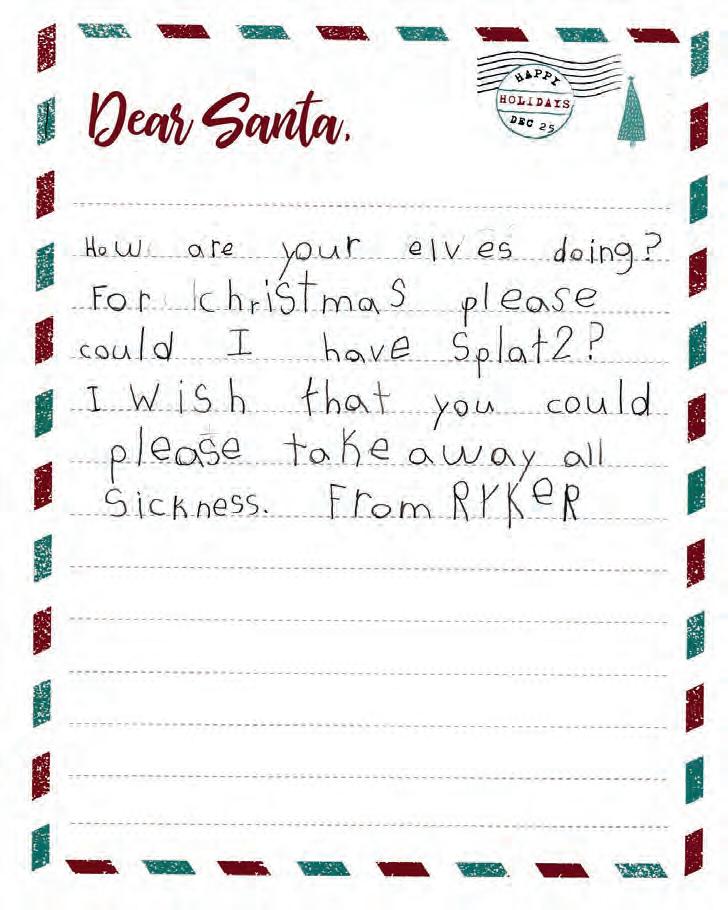 HAPPY
HOLIDAYS
DEC 25
Dear Santa,
How are your elves doing?
For christmas please
could I have Splat2?
I wish that you could
please take away all
Sickness. From RYKeR